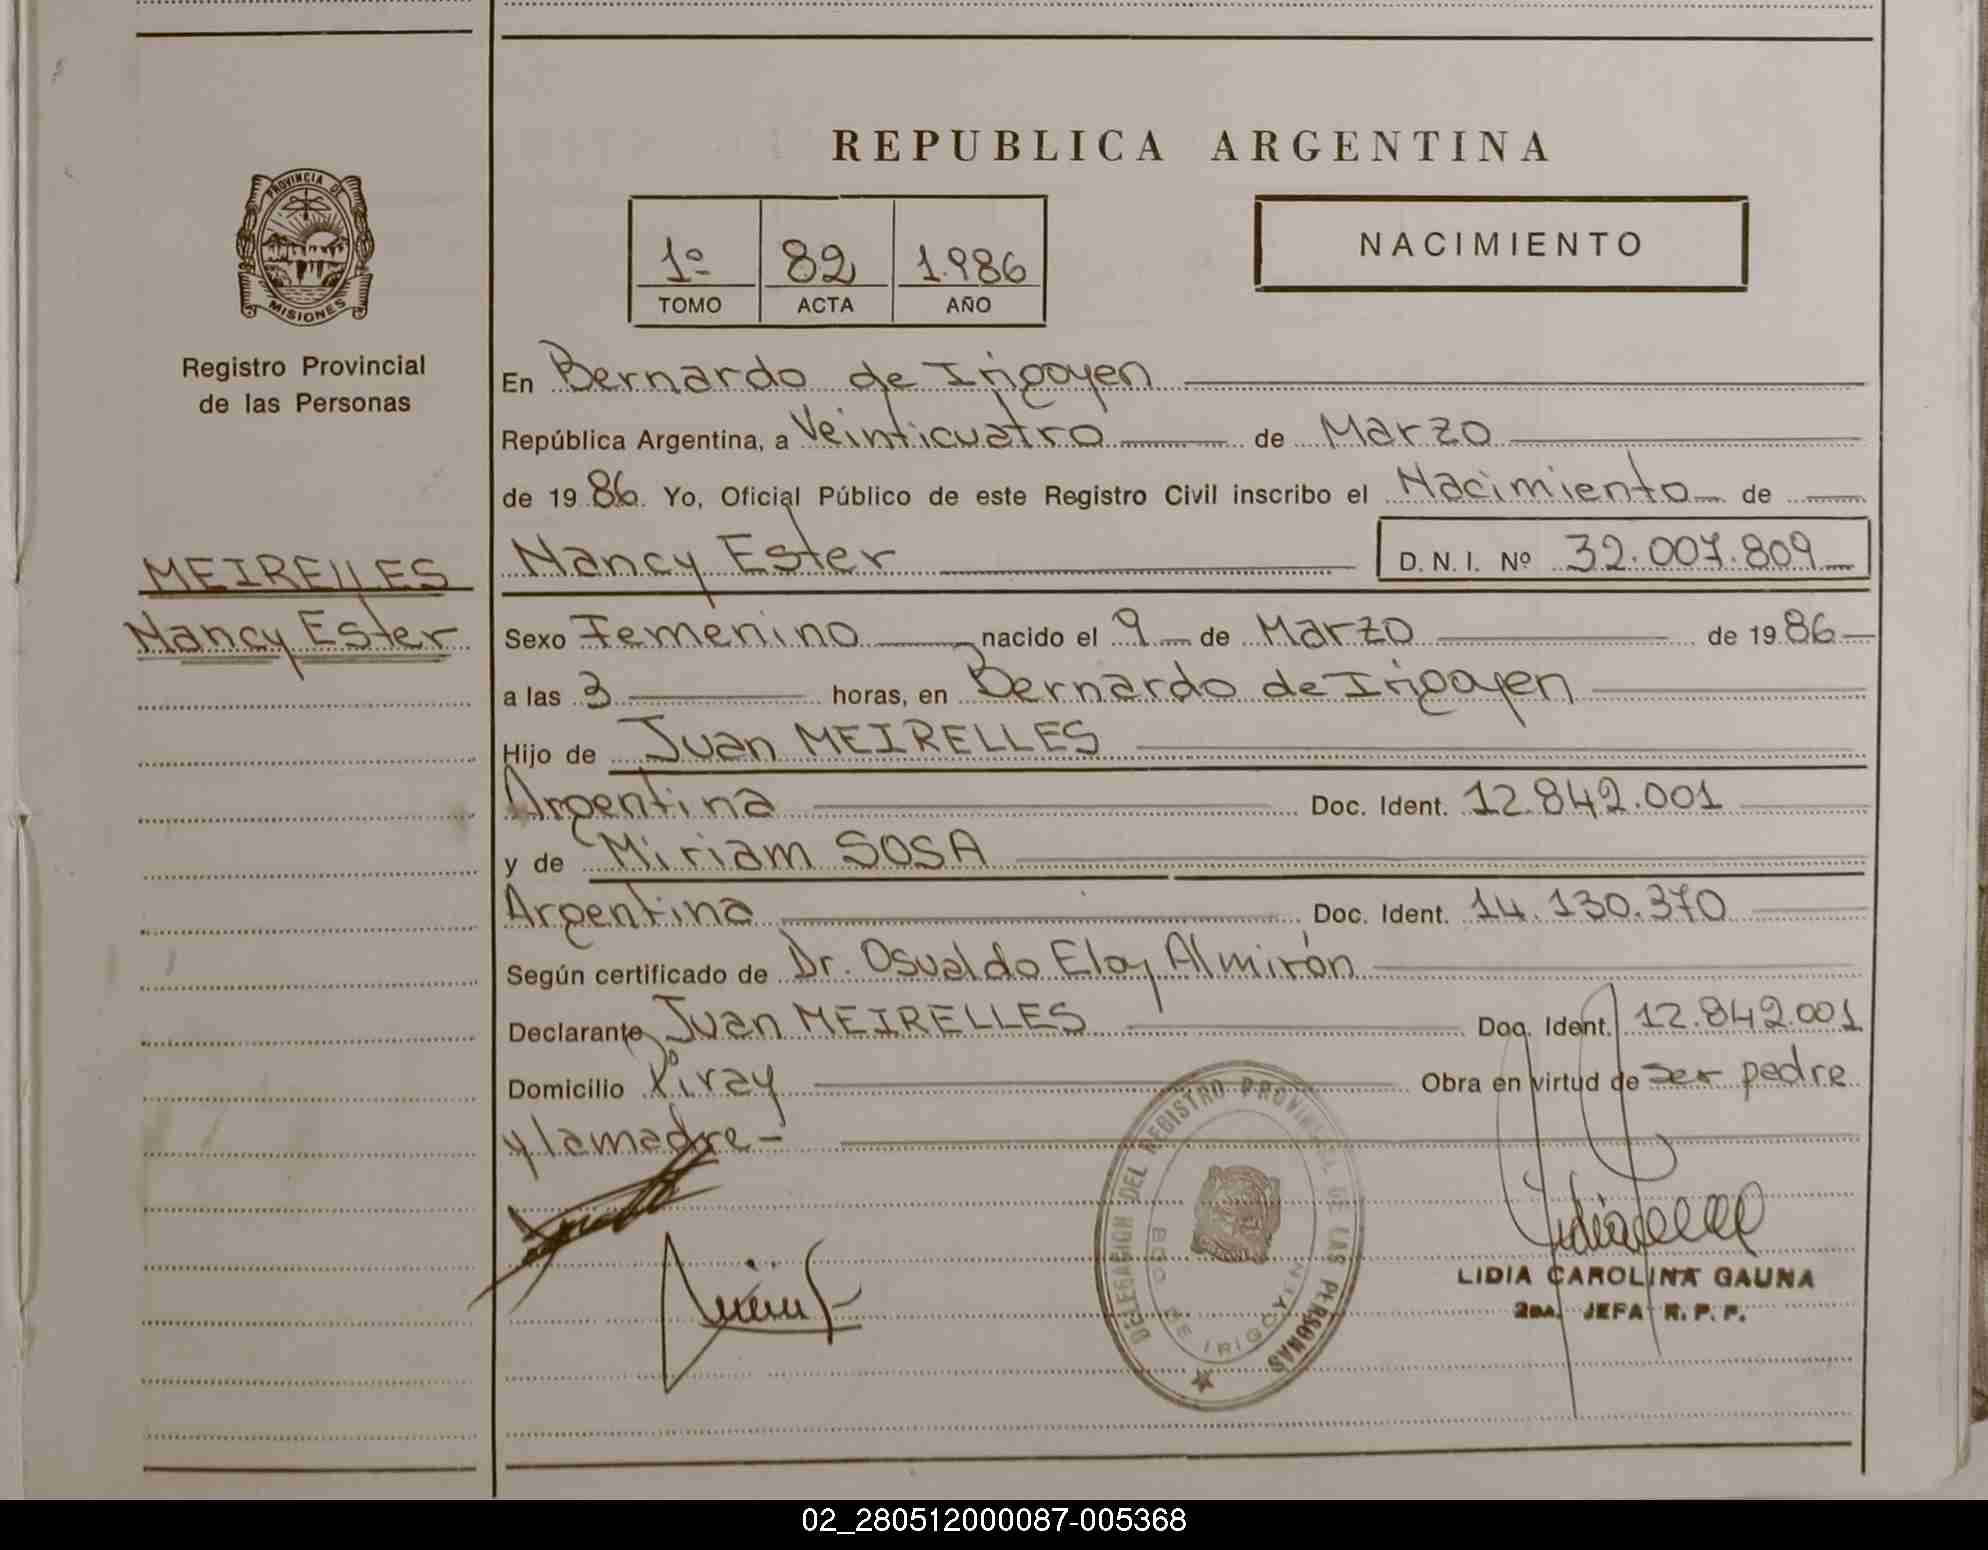 REPUBLICA ARGENTINA
PROVINCIA DE
MISIONES
Registro Provincial
de las Personas
1º 82 1.986
TOMO ACTA AÑO
NACIMIENTO
En Bernardo de Irigoyen
República Argentina, a Veinticuatro de Marzo
de 19 86. Yo, Oficial Público de este Registro Civil inscribo el Nacimiento de
MEIRELLES
Nancy Ester
Nancy Ester D. N. I. Nº 32.007.809
Sexo Femenino nacido el 9 de Marzo de 19 86
a las 3 horas, en Bernardo de Irigoyen
Hijo de Juan MEIRELLES
Argentina Doc. Ident. 12.842.001
y de Miriam SOSA
Argentina Doc. Ident. 14.130.370
Según certificado de Dr. Osvaldo Eloy Almirón
Declarante Juan MEIRELLES Doc. Ident. 12.842.001
Domicilio Piray Obra en virtud de ser padre
y la madre -
DELEGACION DEL REGISTRO PROVINCIAL DE LAS PERSONAS
BDO. DE IRIGOYEN
LIDIA CAROLINA GAUNA
2DA. JEFA R. P. P.
02_280512000087-005368